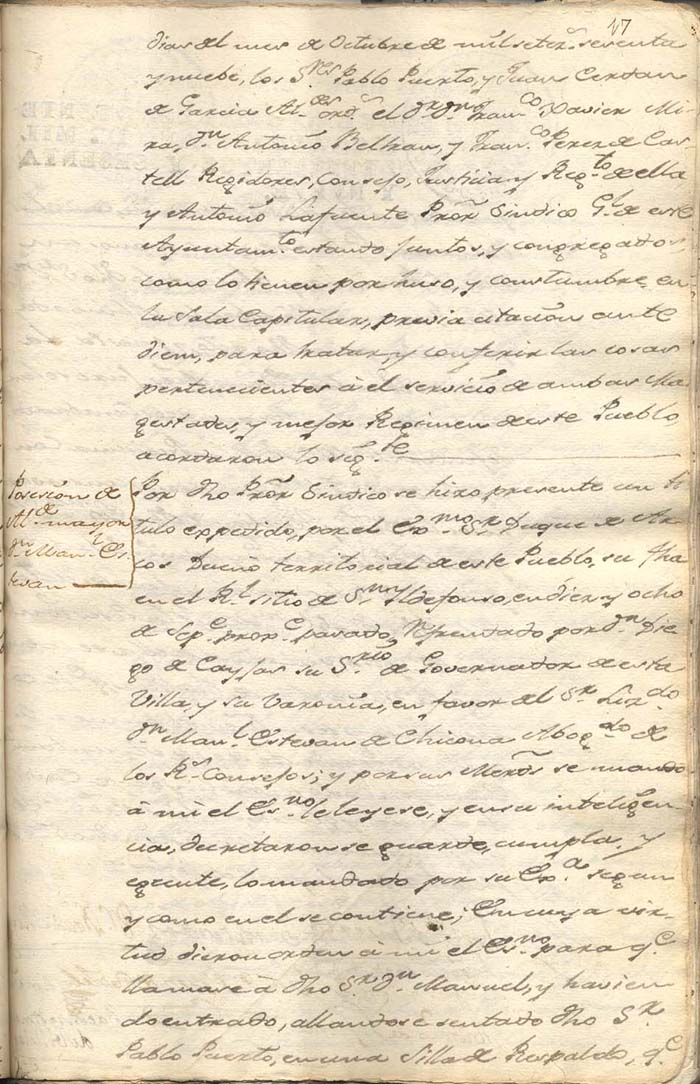 17
dias del mes de Octubre de mil setez.s sesenta
y nuebe, los S.res Pablo Puerto, y Juan Cerdan
de Garcia Al.des ord.s el D.r D.n Fran.co Xavier Mi
ra, D.n Antonio Beltran, y Fran.co Perez de Cas-
tell Regidores, Consejo, Justicia y Reg.to de ella
y Antonio Lafuente Pror Sindico G.l de este
Ayuntam.to estando juntos, y congregados,
como lo tienen por huso, y constumbre en
la Sala Capitular, previa citacion ante
diem, para tratar y conferir las cosas
pertenecientes à el servicio de ambas Ma
gestades, y mejor Regimen de este Pueblo,
acordaron lo sig.te
Posesion de
Al.de mayor
D.n Man.l Es-
tevan
Por dho Pror Sindico se hizo presente un ti
tulo expedido, por el Ex.mo S.r Duque de Ar-
cos Dueño territorial de este Pueblo, su fha
en el R.l sitio de S.n Yldefonso, en diez y ocho
de Sep.e prox.o pasado, Refrendado por D.n Die
go de Cayssas su S.rio de Governador de esta
Villa, y su Varonia, en favor del S.r Liz.do
D.n Man.l Estevan de Chicona Abog.do de
los R.s Consejos; y por sus Merds se mandó
à mi el Es.no le leyese, y en su inteligen-
cia, decretaron se guarde, cumpla, y
egecute, lo mandado por su Ex.a segun
y como en el se contiene; En cuya vir-
tud dieron orden à mi el Es.no para q.e
llamase à dho S.r D.n Manuel, y havien
do entrado, allandose sentado dho S.r
Pablo Puerto, en una Silla de Respaldo, q.e